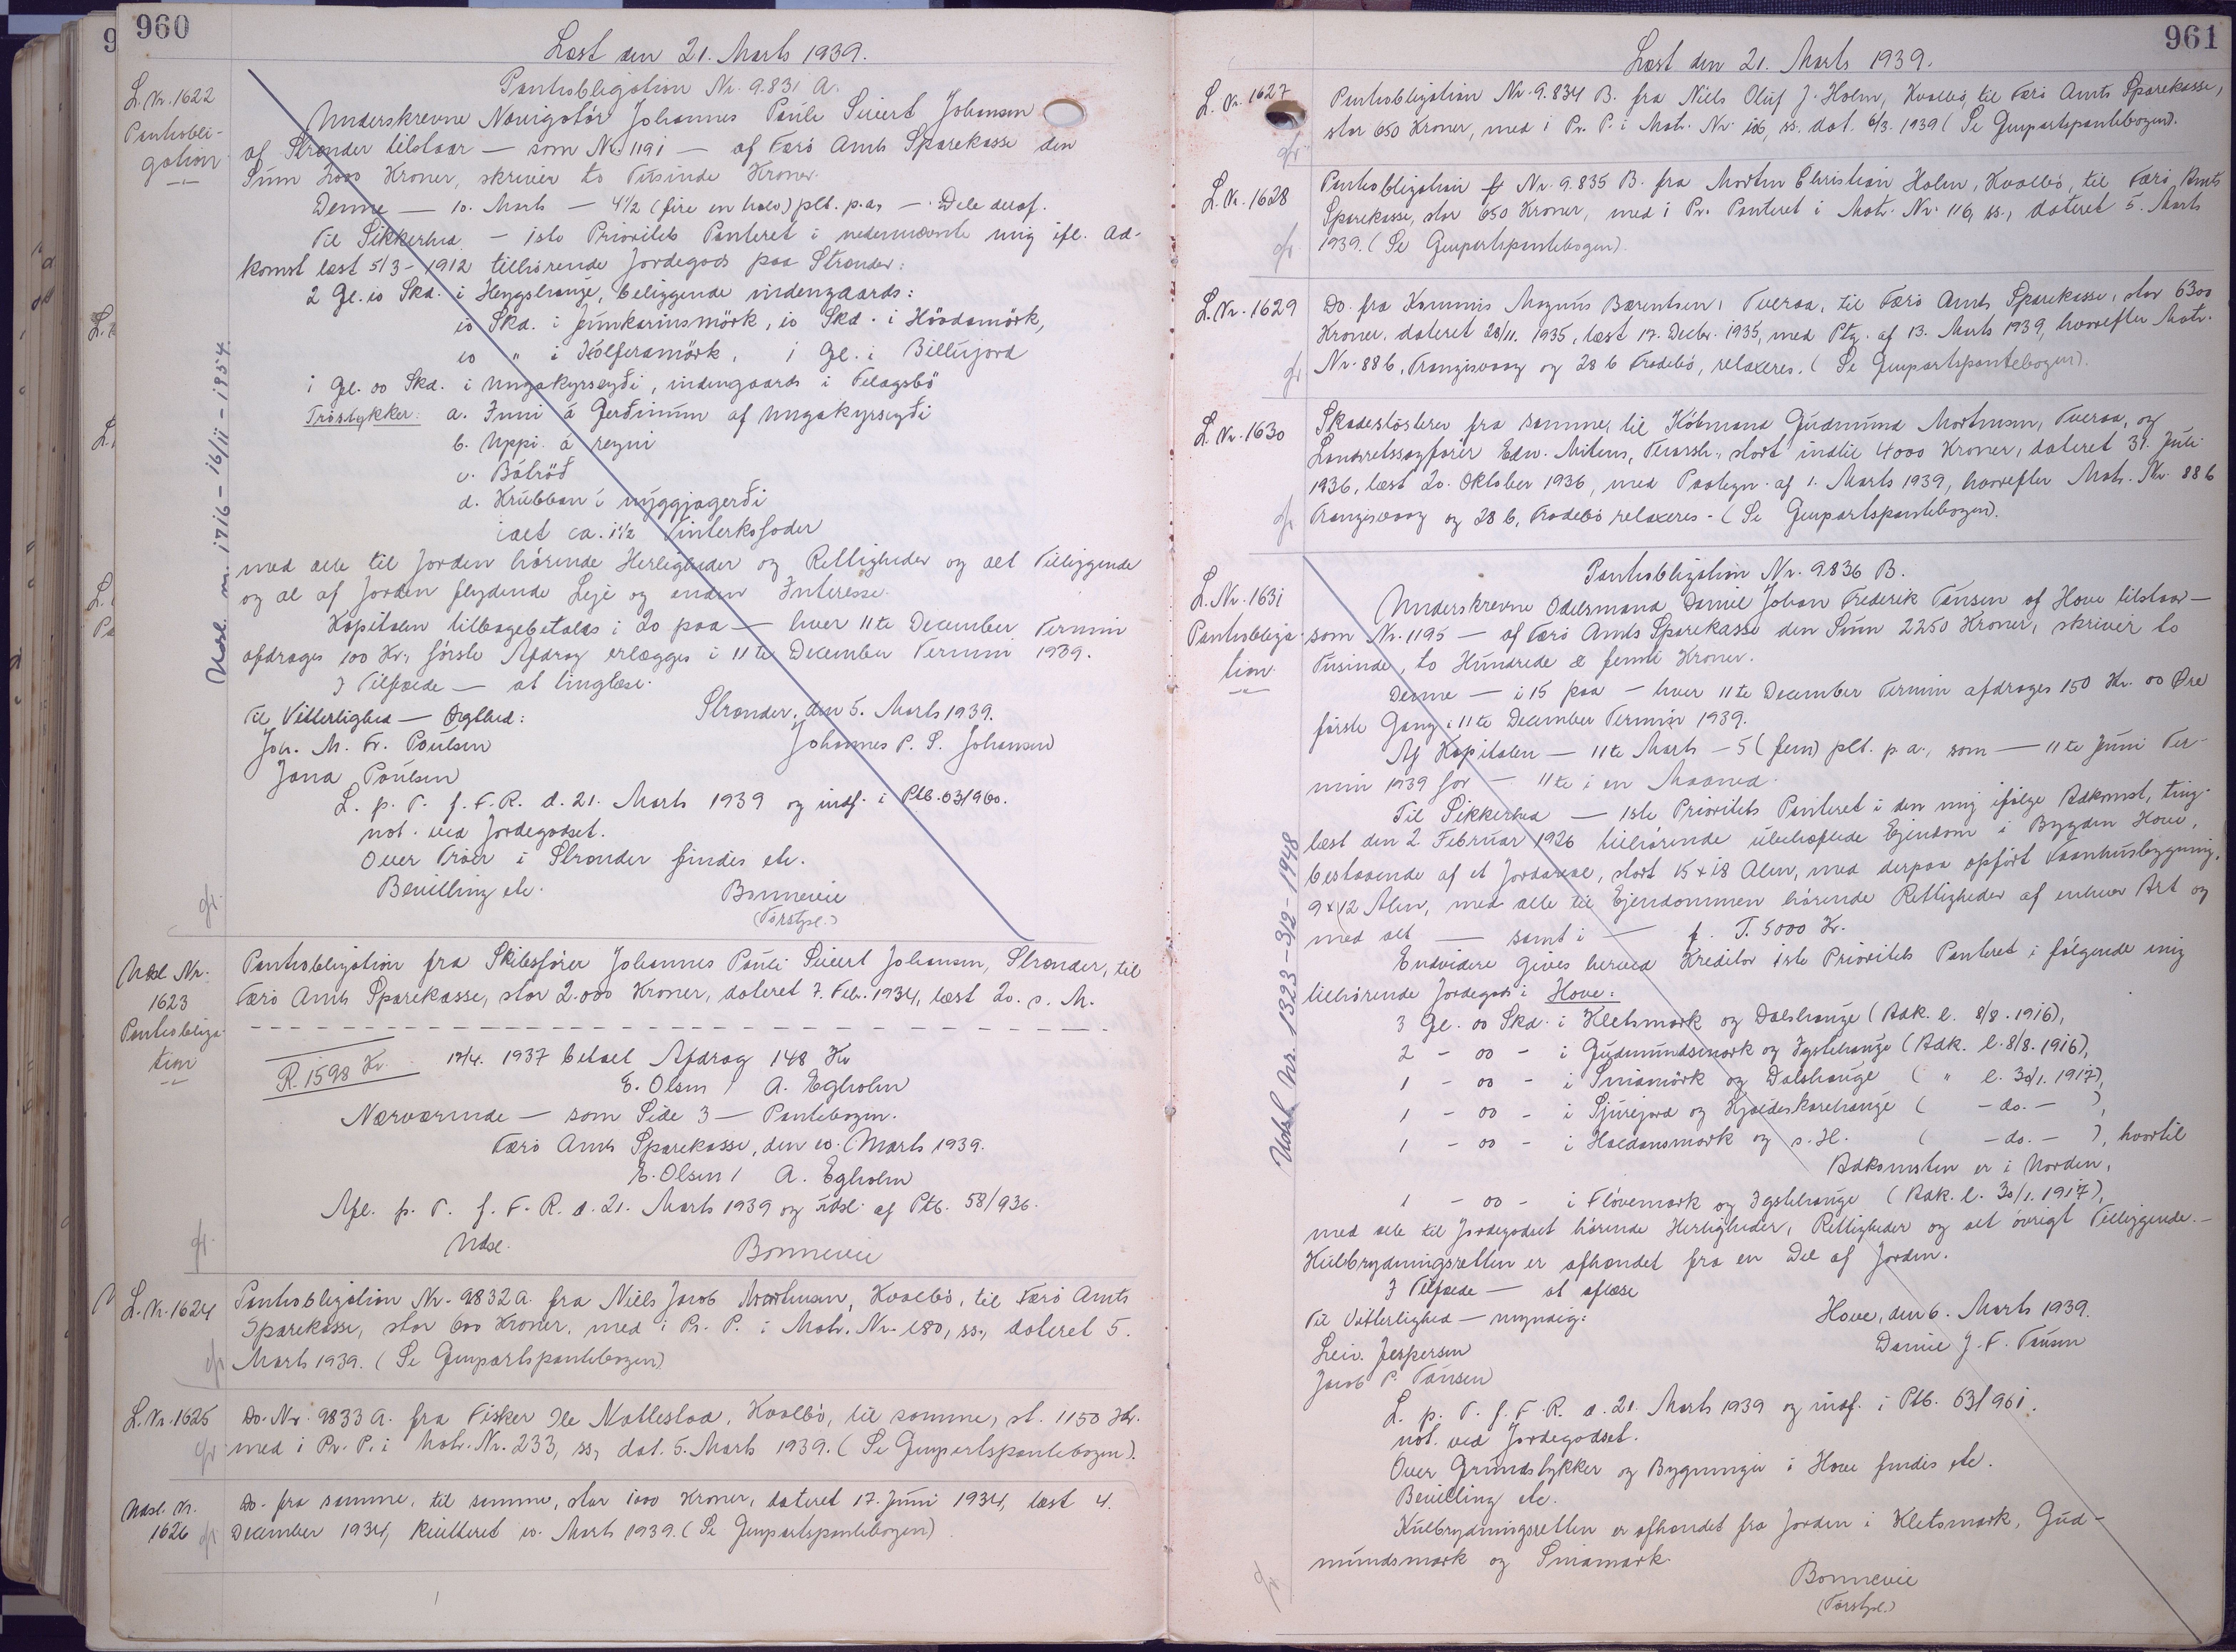 960
Læst den 21. Marts 1939.
L. Nr. 1622
Pantobli-
gation
Pantobligation Nr. 9.831 A.
Underskrevne Navigatör Johannes Paule Sivert Johansen
af Strænder tilstaar — som Nr. 1191 — af Færö Amts Sparekasse den
Sum 2000 Kroner, skriver to Tusinde Kroner.
Denne — 10. Marts — 4½ (fire en halv) pct. p.a. — Dele deraf.
Til Sikkerhed — 1ste Prioritets Panteret i nedennævnte mig ifl. Ad-
komst læst 5/3-1912 tilhörende Jordegods paa Strænder:
2 Gl. 10 Skd. i Heygshauge, beliggende indengaards:
10 Skd. i Junkarinsmörk, 10 Skd. i Hövdamörk,
10 " i Kálferamörk, 1 Gl. i Billurjord
1 Gl. 00 Skd. i Ungakyrseyði, indengaards i Felagsbö
Tröstykker: a. Inni á Gerðinum af Ungakyrseyði
b. Uppi á reyni
c. Bálröð
d. Krubban í nýggjagerði
ialt ca. 1½ Vinterkofoder
med alle til Jorden hörende Herligheder og Rettigheder og alt Tilliggende
og al af Jorden flydende Leje og anden Interesse.
Kapitalen tilbagebetales i 20 paa — hver 11te December Termin
afdrages 100 Kr., förste Afdrag erlægges i 11te December Termin 1939.
I Tilfælde — at tinglæse.
Til Vitterlighed — Ægthed:
Strænder, den 5. Marts 1939.
Joh. M. Fr. Poulsen
Johannes P. S. Johansen
Jana Poulsen
L. p. T. f. F. R. d. 21. Marts 1939 og indf. i Ptb. 63/960.
not. ved Jordegodset.
Over Tröer i Strænder findes etc.
Bevilling etc.
Bonnevie
(Færstyol.)
Udsl. nr. 1716 - 16/11 - 1954.
Udsl Nr.
1623
Pantobliga-
tion
Pantobligation fra Skibsförer Johannes Pauli Sivert Johansen, Strænder, til
Færö Amts Sparekasse, stor 2.000 Kroner, dateret 7. Feb. 1934, læst 20. s. M.
R. 1598 Kr.
17/4. 1937 betalt Afdrag 148 Kr
E. Olsen / A. Egholm
Nærværende — som Side 3 — Pantebogen.
Færö Amts Sparekasse, den 10. Marts 1939.
E. Olsen / A. Egholm
Afl. p. T. f. F. R. d. 21. Marts 1939 og udsl. af Ptb. 58/936.
Udsl.
Bonnevie
L. Nr. 1624
Pantobligation Nr. 9832 A. fra Niels Jacob Mortensen, Kvalbö, til Færö Amts
Sparekasse, stor 600 Kroner, med 1 Pr. P. i Matr. Nr. 180, ss., dateret 5.
Marts 1939. (Se Genpartspantebogen)
L. Nr. 1625
Do. Nr. 9833 A. fra Fisker Ole Nattestad, Kvalbö, til samme, st. 1150 Kr.
med 1 Pr. P. i Matr. Nr. 233, ss., dat. 5. Marts 1939. (Se Genpartspantebogen).
Udsl. Nr.
1626
Do. fra samme, til samme, stor 1000 Kroner, dateret 17. Juni 1934, læst 4.
December 1934, kvitteret 10. Marts 1939. (Se Genpartspantebogen)
961
Læst den 21. Marts 1939.
L. Nr. 1627
Pantobligation Nr. 9.834 B. fra Niels Oluf J. Holm, Kvalbö, til Færö Amts Sparekasse,
stor 650 Kroner, med 1 Pr. P. i Matr. Nr. 116, ss. dat. 6/3. 1939 (Se Genpartspantebogen).
L. Nr. 1628
Pantobligation Nr. 9.835 B. fra Morten Christian Holm, Kvalbö, til Færö Amts
Sparekasse, stor 650 Kroner, med 1 Pr. Panteret i Matr. Nr. 116, ss., dateret 5. Marts
1939. (Se Genpartspantebogen).
L. Nr. 1629
Do. fra Kommis Magnus Bærentsen, Tveraa, til Færö Amts Sparekasse, stor 6300
Kroner, dateret 28/11. 1935, læst 17. Decbr. 1935, med Ptg. af 13. Marts 1939, hvorefter Matr.
Nr. 88 b, Trangisvaag og 28 b Frodebö, relaxeres. (Se Genpartspantebogen).
L. Nr. 1630
Skadeslösbrev fra samme, til Köbmand Gudmund Mortensen, Tveraa, og
Landsretssagförer Edw. Mitens, Thorsh., stort indtil 4000 Kroner, dateret 31. Juli
1936, læst 20. Oktober 1936, med Paategn. af 1. Marts 1939, hvorefter Matr. Nr. 88 b
Trangisvaag og 28 b, Frodebö relaxeres. (Se Genpartspantebogen).
L. Nr. 1631
Pantobliga-
tion
Pantobligation Nr. 9836 B.
Underskrevne Odelsmand Daniel Johan Frederik Tausen af Hove tilstaar —
som Nr. 1195 — af Færö Amts Sparekasse den Sum 2250 Kroner, skriver to
Tusinde, to Hundrede & femti Kroner.
Denne — i 15 paa — hver 11te December Termin afdrages 150 Kr. 00 Øre
förste Gang i 11te December Termin 1939.
Af Kapitalen — 11te Marts — 5 (fem) pct. p. a., som — 11te Juni Ter-
min 1939 for — 11te i en Maaned.
Til Sikkerhed — 1ste Prioritets Panteret i den mig ifölge Adkomst, ting-
læst den 2 Februar 1926 tilhörende ubehæftede Ejendom i Bygden Hove,
bestaaende af et Jordareal, stort 15 x 18 Alen, med derpaa opfört Vaanhusbygning,
9 x 12 Alen, med alle til Ejendommen hörende Rettigheder af enhver Art og
med alt — samt i — f. T. 5000 Kr.
Endvidere gives herved Kreditor 1ste Prioritets Panteret i fölgende mig
tilhörende Jordegods i Hove:
3 Gl. 00 Skd. i Kletsmørk og Dalshauge (Adk. l. 8/8. 1916),
2 - 00 - i Gudmundsmørk og Ygstehauge (Adk. l. 8/8. 1916),
1 - 00 - i Smiamörk og Dalshauge ( " l. 30/1. 1917),
1 - 00 - i Sjurejord og Kjældeskorehauge ( — do. — ),
1 - 00 - i Haldansmørk og s. H. ( — do. — ), hvortil
Adkomsten er i Norden,
1 - 00 - i Flóvemørk og Ygstehauge (Adk. l. 30/1. 1917),
med alle til Jordegodset hörende Herligheder, Rettigheder og alt övrigt Tilliggende.—
Kulbrydningsretten er afhændet fra en Del af Jorden.
I Tilfælde — at aflæse
Til Vitterlighed — myndig:
Hove, den 6. Marts 1939.
Leiv. Jespersen
Daniel J. F. Tausen
Jacob P. Tausen
L. p. T. f. F. R. d. 21. Marts 1939 og indf. i Ptb. 63/961.
not. ved Jordegodset.
Over Grundstykker og Bygninger i Hove findes etc.
Bevilling etc.
Kulbrydningsretten er afhændet fra Jorden i Kletsmørk, Gud-
mundsmørk og Smiamørk.
Bonnevie
(Færstyol.)
Udsl. Nr. 1323 - 3/2 - 1948